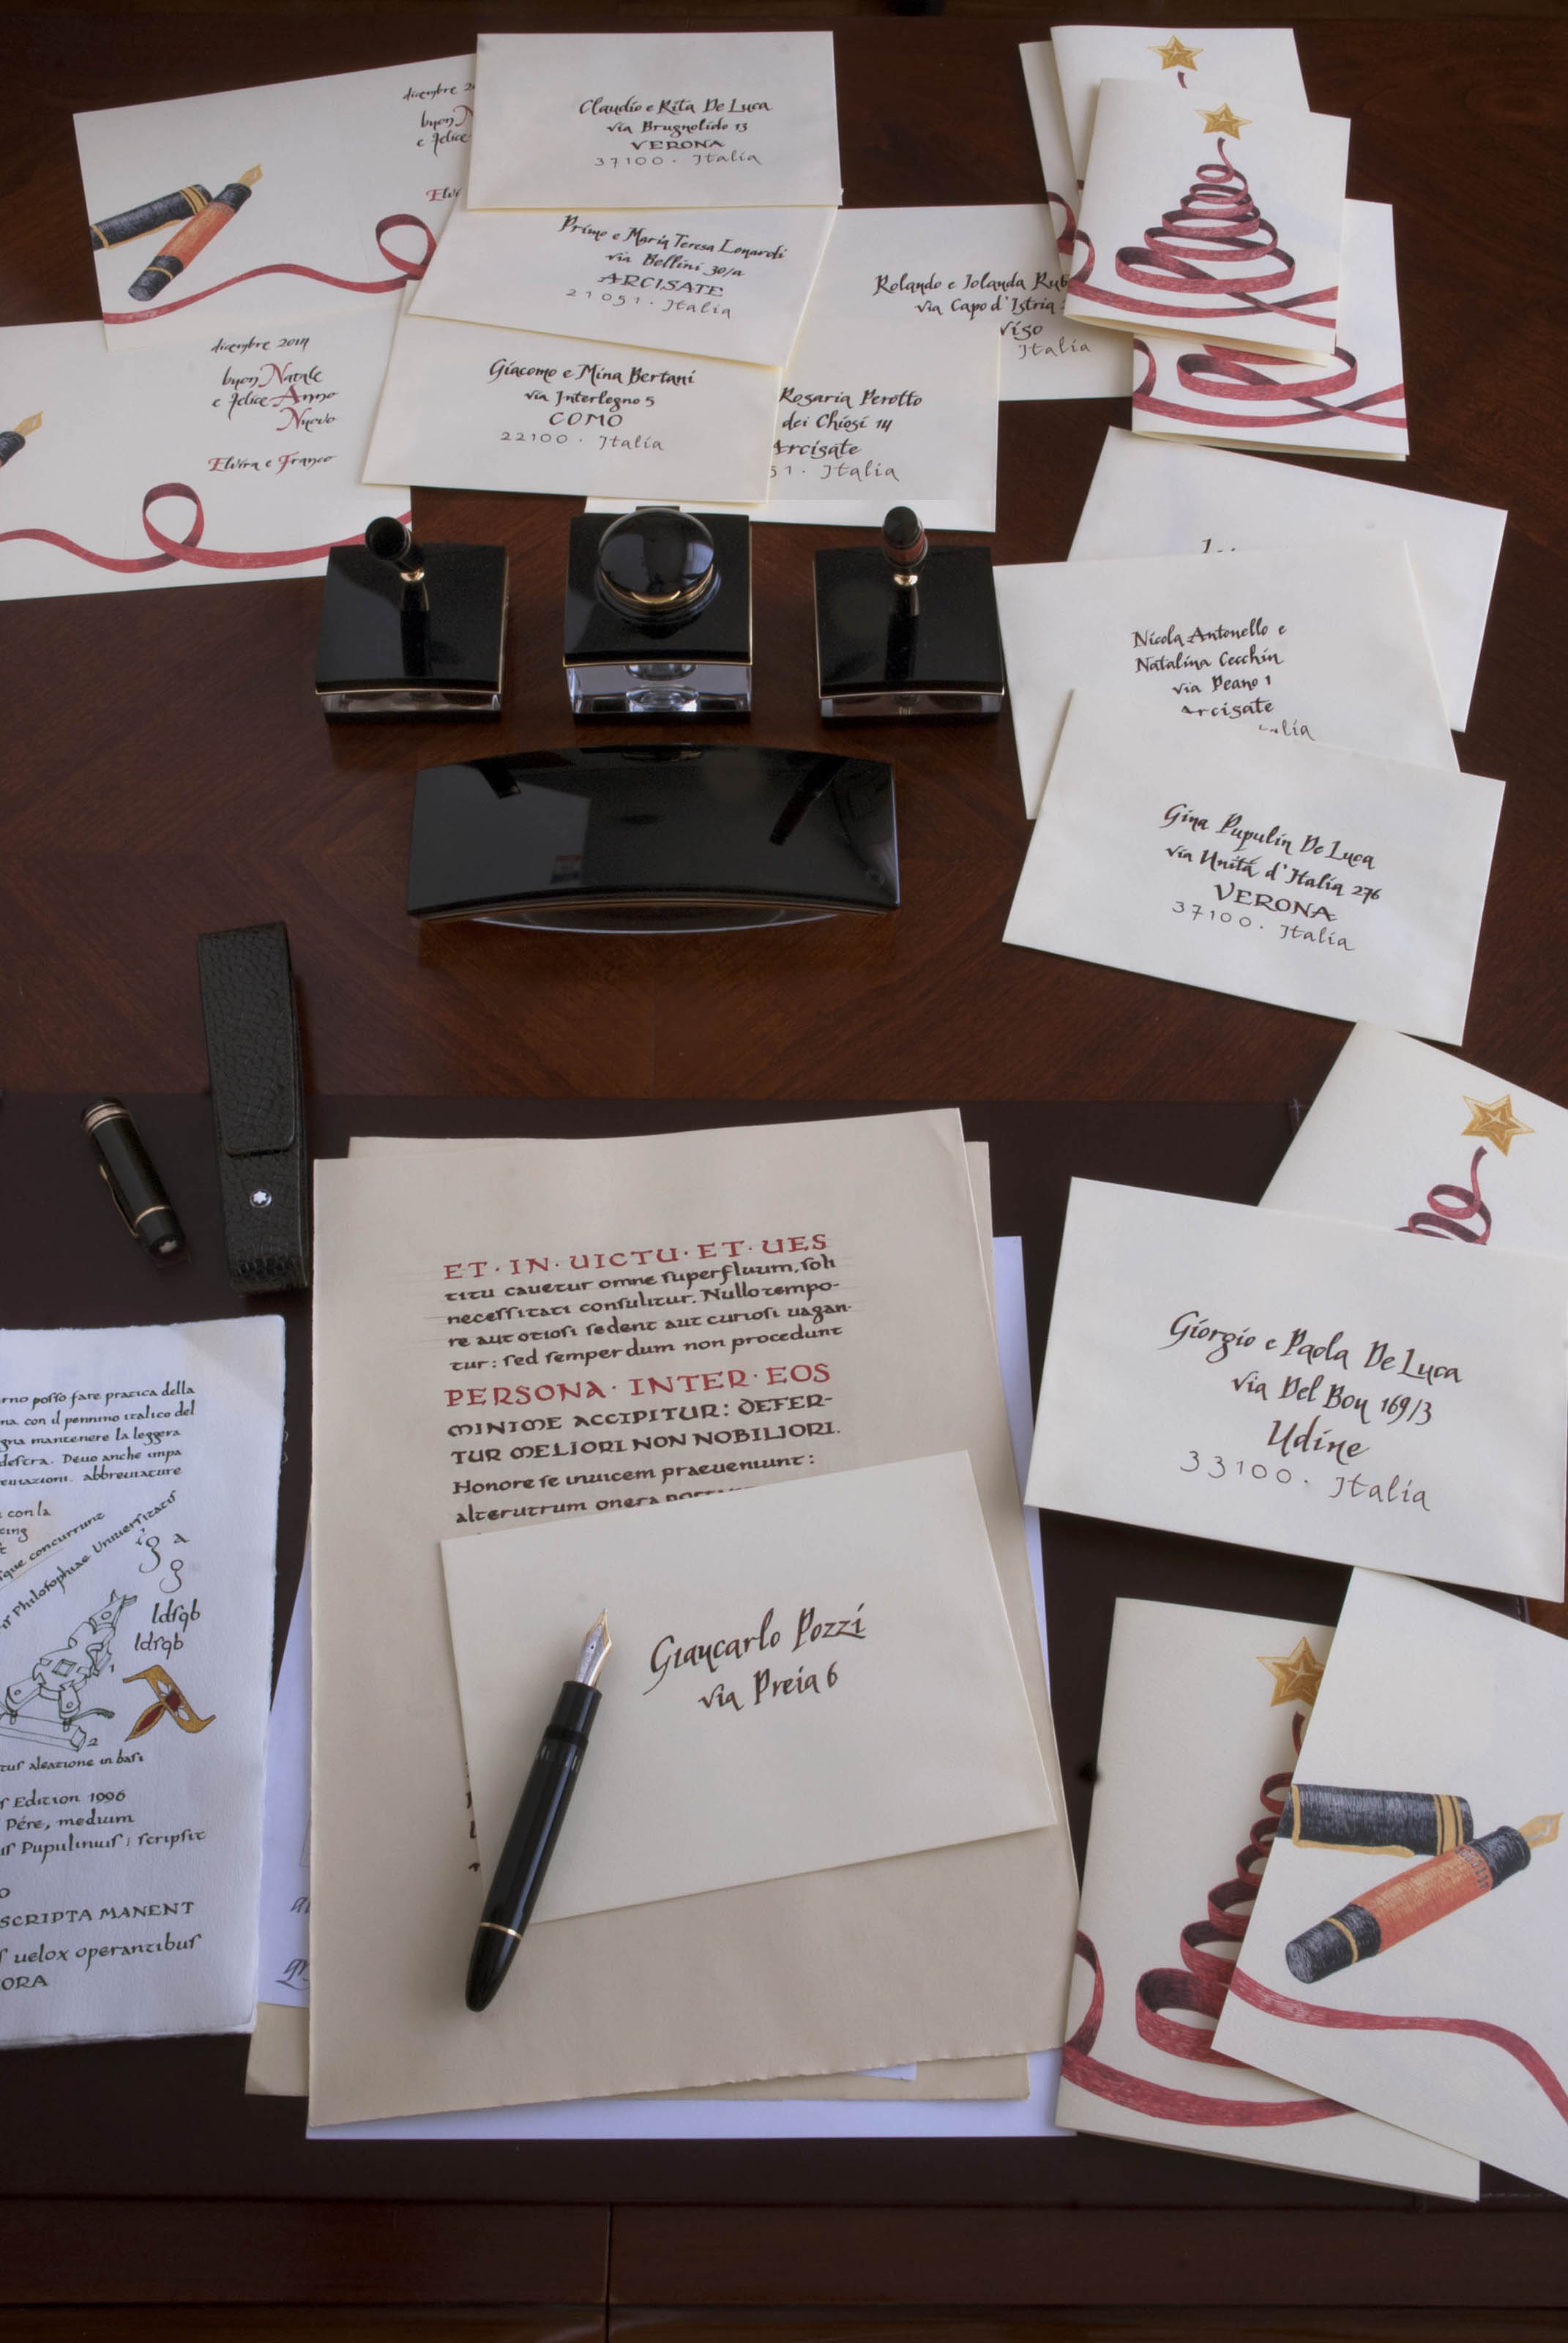 dicembre
buon
e felice
Claudio e Rita De Luca
via Brugnolido 13
VERONA
37100 · Italia
Primo e Maria Teresa Lonardi
via Bellini 30/a
ARCISATE
21051 · Italia
Rolando e Iolanda
via Capo d'Istria
Italia
dicembre 2014
buon Natale
e felice Anno
Nuovo
Elvira e Franco
Giacomo e Mina Bertani
via Interlegno 5
COMO
22100 · Italia
Rosaria Perotto
dei Chiosi 14
Arcisate
51 · Italia
Nicola Antonello e
Natalina Cecchin
via Peano 1
Arcisate
Gina Pupulin De Luca
via Unità d'Italia 276
VERONA
37100 · Italia
ET · IN · UICTU · ET · UES
titu cauetur omne superfluum, soli
necessitati consulitur. Nullo tempo-
re aut otiosi sedent aut curiosi uagan-
tur: sed semper dum non procedunt
PERSONA · INTER · EOS
MINIME ACCIPITUR: DEFER-
TUR MELIORI NON NOBILIORI.
Honore se inuicem praeueniunt:
alterutrum onera
Giorgio e Paola De Luca
via Del Bon 169/3
Udine
33100 · Italia
Giancarlo Pozzi
via Preia 6
posso fare pratica della
con il pennino italico del
mantenere la leggera
destra. Devo anche
abbreviature
con la
que concurrunt
Philosophiae Uniuersitatis
a
g
ldsqb
ldsqb
1
2
aleatione in basi
Edition 1996
Pére, medium
Pupulinius; scripsit
SCRIPTA MANENT
uelox operantibus
ORA